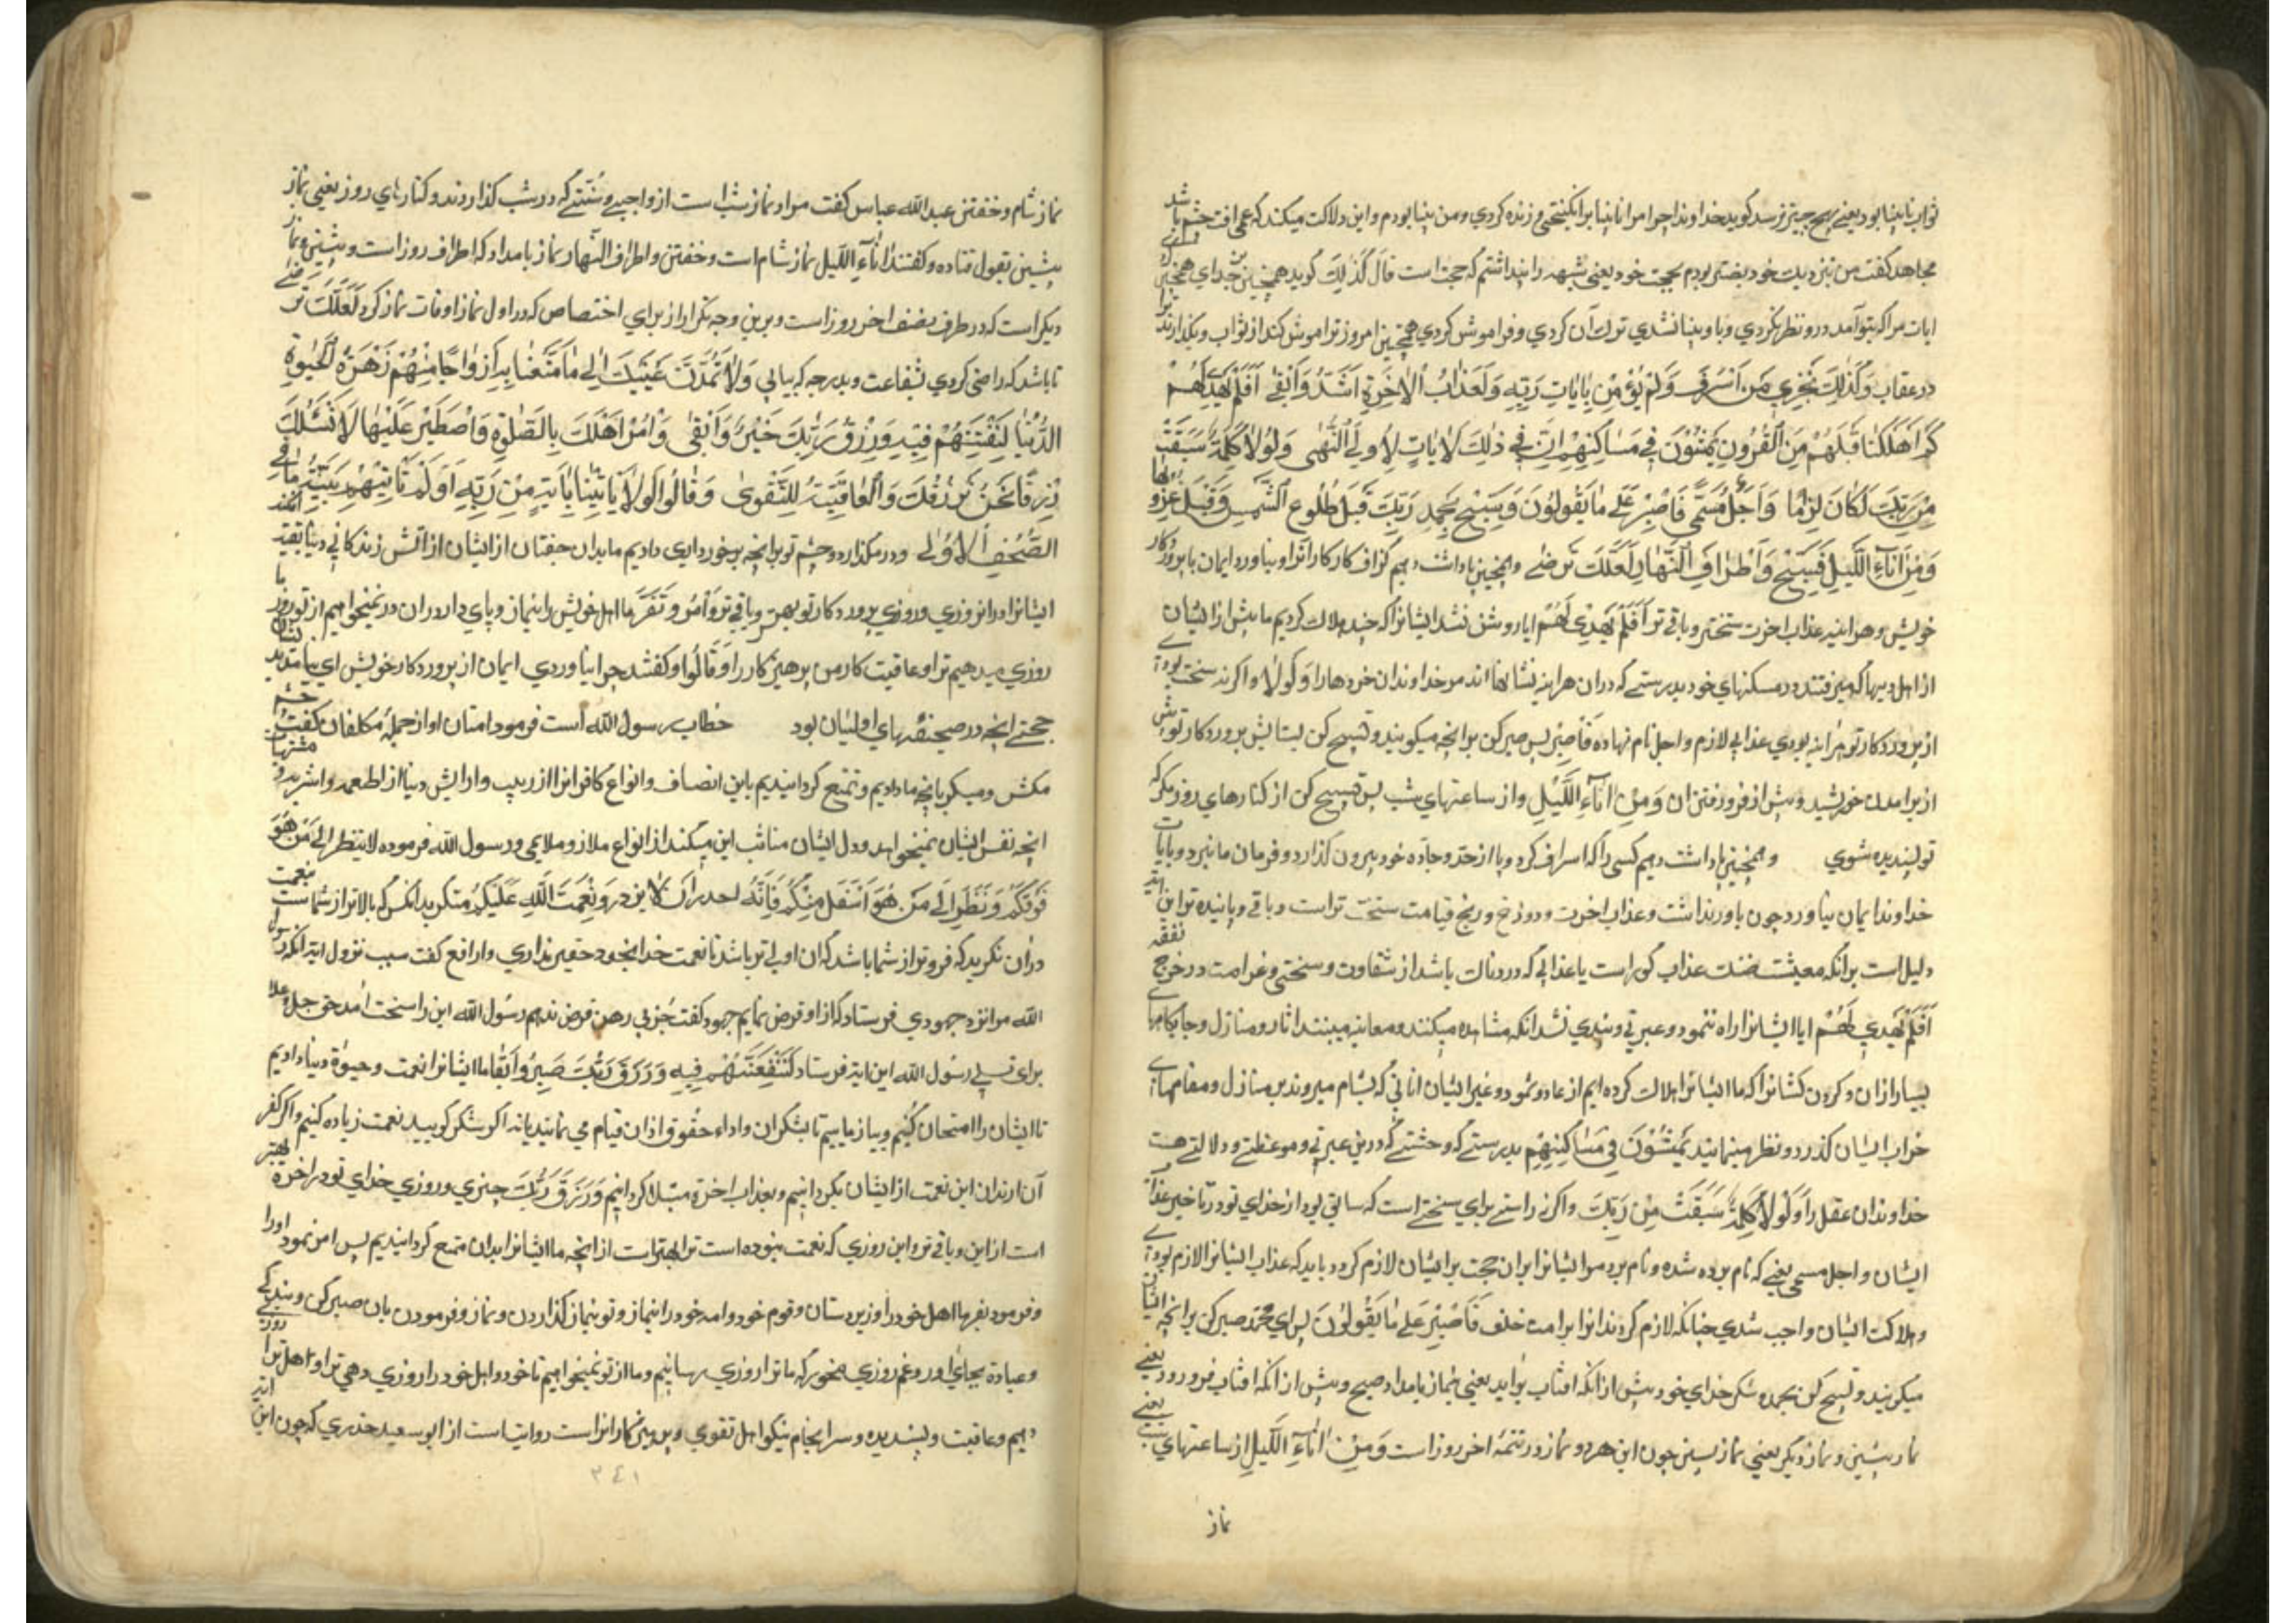 ثواب نابینا بود یعنی بهیچ چیز نرسد کوید خداوندا چرا مرا نابینا برانکیختی و زنده کردی و من بینا بودم و این دلالت میکند که عمی آفت چشم باشد
مجاهد کفت من نزدیک خود بودم بحجت خود یعنی شبهه را پنداشتم که حجت است قال کذلک کوید همچنین خدای همچنین که
ایات مرا که بتو آمد درو نظر نکردی و با و بینا نشدی ترک آن کردی و فراموش کردی همچنین امروز ترا فراموش کند از ثواب و بکذارند ترا
در عقاب وَکَذٰلِكَ نَجْزِي مَن أَسْرَفَ وَلَمْ يُؤْمِنْ بِآيَاتِ رَبِّهِ وَلَعَذَابُ الْآخِرَةِ أَشَدُّ وَأَبْقَىٰ أَفَلَمْ يَهْدِ لَهُمْ
كَمْ أَهْلَكْنَا قَبْلَهُمْ مِنَ الْقُرُونِ يَمْشُونَ فِي مَسَاكِنِهِمْ إِنَّ فِي ذٰلِكَ لَآيَاتٍ لِأُولِي النُّهَىٰ وَلَوْلَا كَلِمَةٌ سَبَقَتْ
مِنْ رَبِّكَ لَكَانَ لِزَامًا وَأَجَلٌ مُسَمًّى فَاصْبِرْ عَلَىٰ مَا يَقُولُونَ وَسَبِّحْ بِحَمْدِ رَبِّكَ قَبْلَ طُلُوعِ الشَّمْسِ وَقَبْلَ غُرُوبِهَا
وَمِنْ آنَاءِ اللَّيْلِ فَسَبِّحْ وَأَطْرَافَ النَّهَارِ لَعَلَّكَ تَرْضَىٰ و همچنین پاداشت دهیم کزاف کار کار انرا و نیاورد ایمان با پروردکار
خویش و هراینه عذاب اخرت سختتر و باقی تر أَفَلَمْ يَهْدِ لَهُمْ ایا روشن نشد ایشانرا که چند هلاک کردیم ما پیش از ایشان
از اهل دیهها که میرفتند در مسکنهای خود بدرستی که دران هراینه نشانها اند مر خداوندان خردها را وَلَوْلَا و اکر نه سخت بودی
از پروردکار تو هراینه بودی عذابی لازم و اجل نام نهاده فَاصْبِرْ پس صبر کن برانچه میکویند و تسبیح کن بستایش پروردکار تو پیش
از برامدن خورشید و پیش از فرو رفتن ان وَمِنْ آنَاءِ اللَّيْلِ و از ساعتهای شب پس تسبیح کن از کنارهای روز مکر که
تو پسندیده شوی و همچنین پاداشت دهیم کسی را که اسراف کرد و پا از حد و جاده خود بیرون کذارد و فرمان ما نبرد و بایات
خداوند ایمان نیاورد چون باور نداشت و عذاب اخرت و دوزخ و رنج قیامت سخت تر است و باقی و پاینده تر این ایة
دلیل است برانکه معیشت ضنک عذاب کور است یا عذابی که در دنیا باشد از شقاوت و سختی و غرامت در خرج نفقه
أَفَلَمْ يَهْدِ لَهُمْ ایا ایشانرا راه ننمود و عبرتی و پندی نشد انکه مشاهده میکنند و معاینه میبینند اثار و منازل و جایکاههای
بسیار از ان و کرون کشانرا که ما ایشانرا اهلاک کرده ایم از عاد و ثمود و غیر ایشان انانی که بشام میروند بر منازل و مقامهای
خراب ایشان کذرد و نظر مینمایند يَمْشُونَ فِي مَسَاكِنِهِمْ بدرستی که و حشتی که درین عبرتی و موعظتی و دلالتی هست
خداوندان عقل را وَلَوْلَا كَلِمَةٌ سَبَقَتْ مِنْ رَبِّكَ و اکر نه راستی برای سختی است که سابق بود از خدای تو در تاخیر عذاب
ایشان و اجل مسمی یعنی که نام برده شده و نام برد مر ایشانرا بران حجت بر ایشان لازم کرد و باید که عذاب ایشانرا لازم بودی
و هلاکت ایشان واجب شدی چنانکه لازم کردند انرا برامت خلف فَاصْبِرْ عَلَىٰ مَا يَقُولُونَ پس ای محمد صبر کن برانچه ایشان
میکویند و تسبیح کن بحمد و شکر خدای خود پیش از انکه افتاب براید یعنی نماز بامداد صبح و پیش از انکه افتاب فرو رود یعنی
نماز پیشین و نماز دیکر یعنی نماز پسین چون این هر دو نماز در تتمه اخر روز است وَمِنْ آنَاءِ اللَّيْلِ از ساعتهای شب یعنی
نماز
نماز شام و خفتن عبدالله عباس کفت مراد نماز شب است از واجبی و سنتی که در شب کذاردند و کنارهای روز یعنی نماز
پیشین بقول قتاده و کفتند آناءِ اللیل نماز شام است و خفتن و اطراف النهار نماز بامداد که اطراف روز است و پیشین و نماز
دیکر است که در طرف نصف اخر روز است و برین وجه تکرار از برای اختصاص که در اول نماز اوقات نماز کرد لَعَلَّكَ تَرْضَىٰ
تا باشد که راضی کردی بشفاعت و بدرجه که بیابی وَلَا تَمُدَّنَّ عَيْنَيْكَ إِلَىٰ مَا مَتَّعْنَا بِهِ أَزْوَاجًا مِنْهُمْ زَهْرَةَ الْحَيٰوةِ
الدُّنْيَا لِنَفْتِنَهُمْ فِيهِ وَرِزْقُ رَبِّكَ خَيْرٌ وَأَبْقَىٰ وَأْمُرْ أَهْلَكَ بِالصَّلٰوةِ وَاصْطَبِرْ عَلَيْهَا لَا نَسْئَلُكَ
رِزْقًا نَحْنُ نَرْزُقُكَ وَالْعَاقِبَةُ لِلتَّقْوَىٰ وَقَالُوا لَوْلَا يَأْتِينَا بِآيَةٍ مِنْ رَبِّهِ أَوَلَمْ تَأْتِهِمْ بَيِّنَةُ مَا فِي
الصُّحُفِ الْأُولَىٰ و در مکذار دو چشم تو برانچه برخورداری دادیم ما بدان جفتان از ایشان ارایش زندکانی دنیا
ایشانرا دران روزی و روزی پروردکار تو بهتر و باقی تر وَأْمُرْ اهل خویش را بنماز و پای دار دران در نمیخواهیم از تو روزی ما
روزی میدهیم ترا و عاقبت کار من پرهیزکار را وَقَالُوا و کفتند چرا نیاوردی ایمان از پروردکار خویش ای نیامد
حجتی انچه در صحیفهای اولیان بود خطاب رسول الله است فرمود امتان او از جمله مکلفان کفت چشم
مکش و منکر بانچه ما دادیم و تمتع کردانیدیم باین اصناف و انواع کافرانرا از زیب و ارایش دنیا از اطعمه و اشربه و مشتهیات
انچه نفس ایشان میخواهد و دل ایشان مناسب این میکند از انواع ملاذ و ملایمی و رسول الله فرموده لا ینظر الی مَن هُوَ
فَوْقَكُمْ وَنَظَرَ إِلَىٰ مَن هُوَ أَسْفَلَ مِنْكُمْ فَإِنَّهُ اجدر ان لا یزدر وَنِعْمَتَ اللَّهِ عَلَيْكُمْ منکرید انکس که بالاتر از شماست نعمت
دران نکرید که فروتر از شما باشد که ان اولی تر باشد تا نعمت خدا بخود حقیر نداری و ارافع کفت سبب نزول ایة انکه رسول
الله مرا نزد جهودی فرستاد که از او قرض نمایم جهود کفت جز برهن قرض ندهم رسول الله این را سخت آمد حق جل و علا
برای تسلی رسول الله این ایة فرستاد لِنَفْتِنَهُمْ فِيهِ وَرِزْقُ رَبِّكَ خَيْرٌ وَأَبْقَىٰ ما ایشانرا نعمت و حیوة دنیا دادیم
تا ایشان را امتحان کنیم و بیازماییم تا بشکر ان و اداء حقوق اذان قیام می نمایند یانه اکر شکر کویید نعمت زیاده کنیم و اکر کفر
آن ارند ان این نعمت از ایشان بکردانیم و بعذاب اخرة مبتلا کردانیم وَرِزْقُ رَبِّكَ خیر و روزی خدای تو در اخرة بهتر
است از این و باقی تر و این روزی که نعمت نبوده است ترا بهتر است از انچه ما ایشانرا بدان متمتع کردانیدیم پس امر نمود اورا
و فرمود بفرما اهل خود را و زیر دستان و قوم خود و امة خود را بنماز و تو بنماز کذاردن و نماز و فرمودن بان صبر کن و بندکی
و عبادة بجای اور و غم روزی مخور که ما ترا روزی رسانیم و ما از تو نمیخواهیم تا خود و اهل خود را روزی دهی ترا و اهل ترا روزی
دهیم و عاقبت و پسندیده و سرانجام نیکو اهل تقوی و پرهیزکارانراست روایتست از ابو سعید خدری که چون این ایة
۳۴۱